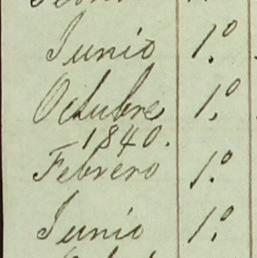 Junio 1.º
Octubre 1.º
1840.
Febrero 1.º
Junio 1.º